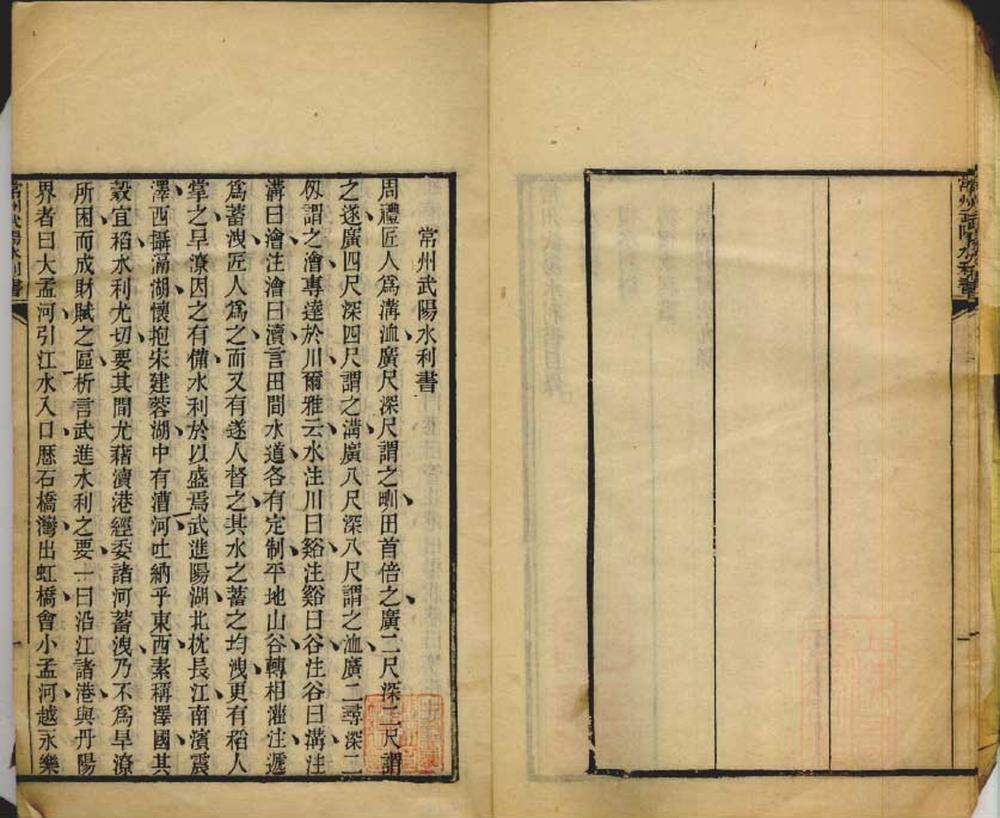 常州武陽水利書
常州武陽水利書
周禮匠人爲溝洫廣尺深尺謂之甽田首倍之廣二尺深二尺謂
之遂廣四尺深四尺謂之溝廣八尺深八尺謂之洫廣二尋深二
仞謂之澮專達於川爾雅云水注川曰谿注谿曰谷注谷曰溝注
溝曰澮注澮曰瀆言田間水道各有定制平地山谷轉相灌注遞
爲蓄洩匠人爲之而又有遂人督之其水之蓄之均洩更有稻人
掌之旱潦因之有備水利於以盛焉武進陽湖北枕長江南濱震
澤西攝滆湖懷抱宋建蓉湖中有漕河吐納乎東西素稱澤國其
穀宜稻水利尤切要其間尤藉瀆港經委諸河蓄洩乃不爲旱潦
所困而成財賦之區析言武進水利之要一曰沿江諸港與丹陽
界者曰大孟河引江水入口歷石橋灣出虹橋會小孟河越永樂
常州武陽水利書
一